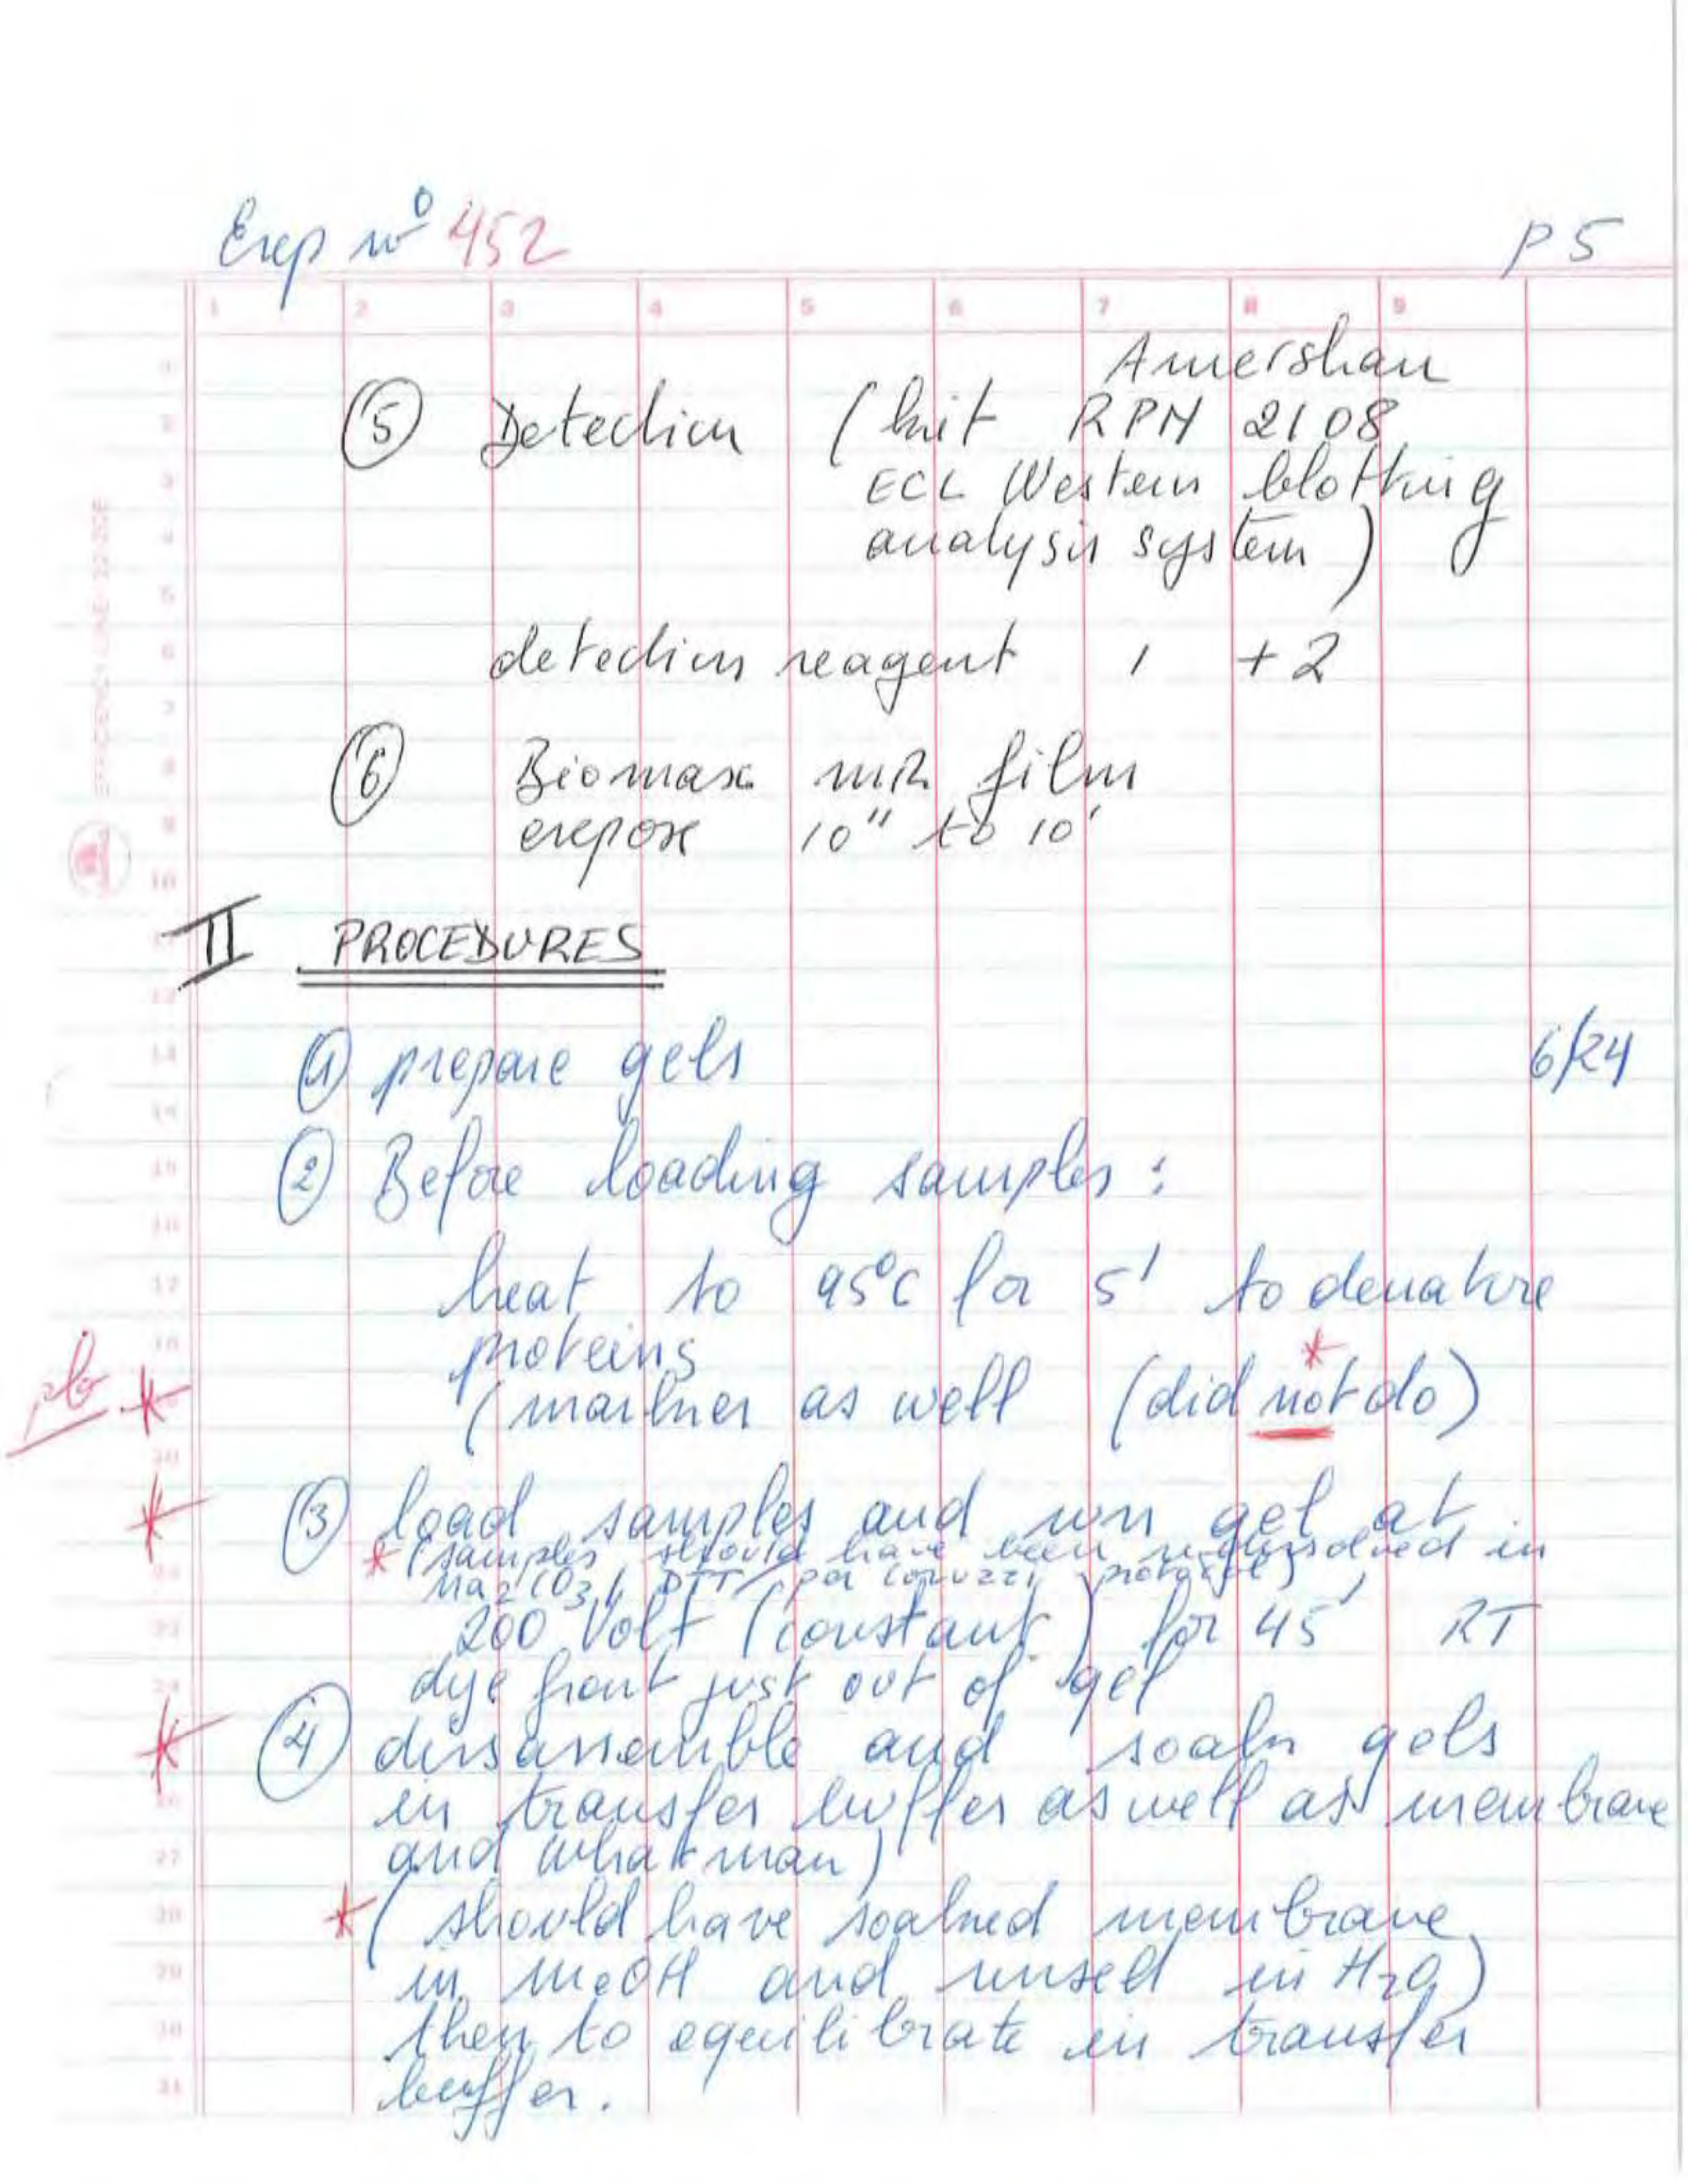 Exp nº 452 P 5
1 2 3 4 5 6 7 8 9
Amersham
(5) Detection (kit RPN 2108
ECL Western blotting
analysis system)
detection reagent 1 + 2
(6) Biomax MR film
expose 10" to 10'
II PROCEDURES
(1) prepare gels 6/24
(2) Before loading samples :
heat to 95°C for 5' to denature
proteins *
pb * (marker as well (did not do)
* (3) load samples and run gel at
* (samples should have been in
Na2CO3, DTT per Coruzzi protocol)
200 Volt (constant) for 45' RT
dye front just out of gel
* (4) dissassemble and soak gels
in transfer buffer as well as membrane
and whatman)
* (should have soaked membrane
in MeOH and rinsed in H2O)
then to equilibrate in transfer
buffer.